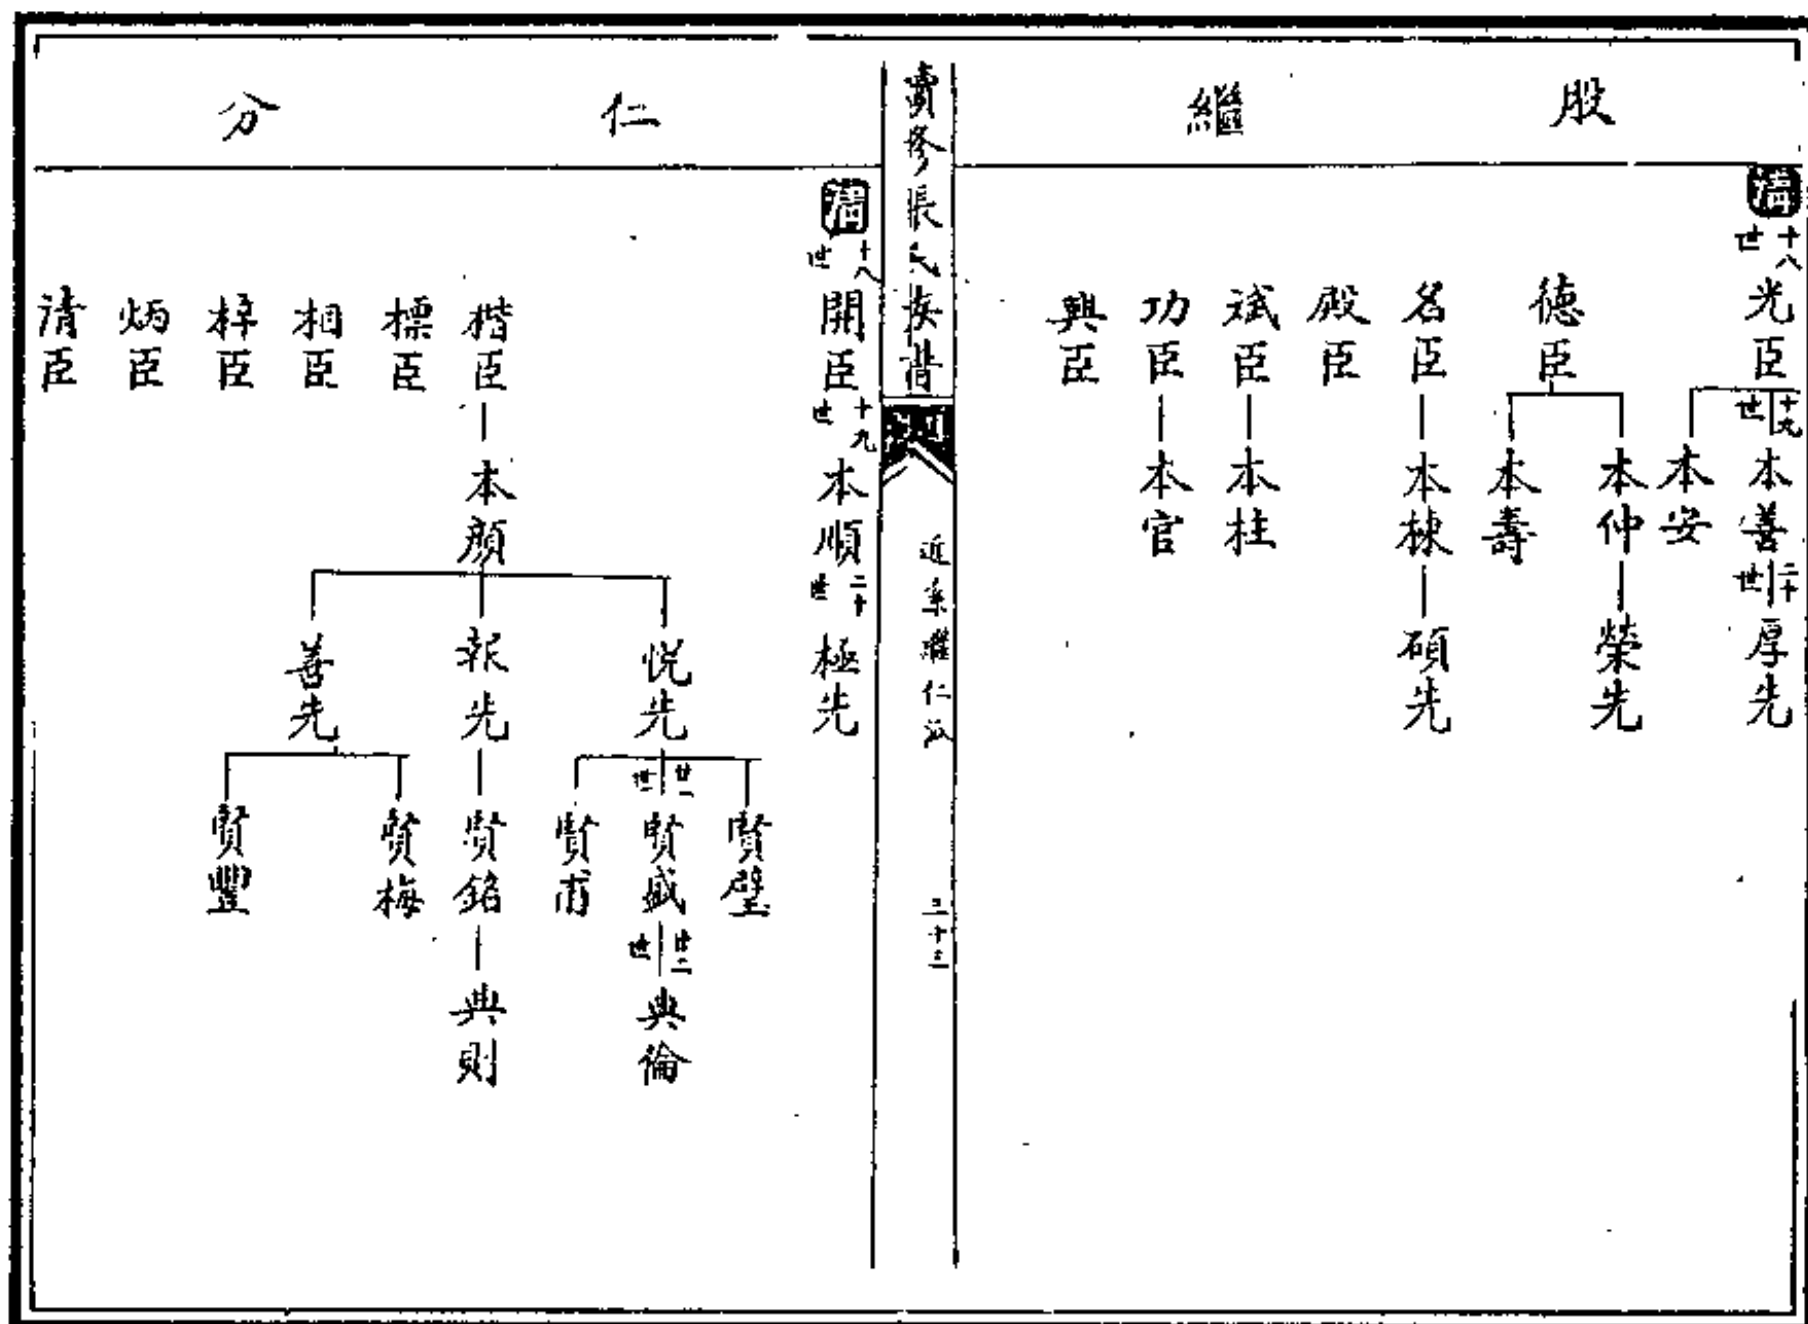 股繼
十八世
光臣
十九世
本善
二十世
厚先
本安
德臣
本仲
榮先
本壽
名臣
本棟
碩先
殿臣
斌臣
本柱
功臣
本官
興臣
張氏
近系繼仁派
二十三
仁分
十八世
開臣
十九世
本順
二十世
極先
楷臣
本顏
悦先
廿一世
賢璧
賢盛
廿二世
典倫
賢甫
報先
賢銘
典則
善先
賢梅
賢豐
標臣
相臣
梓臣
炳臣
清臣